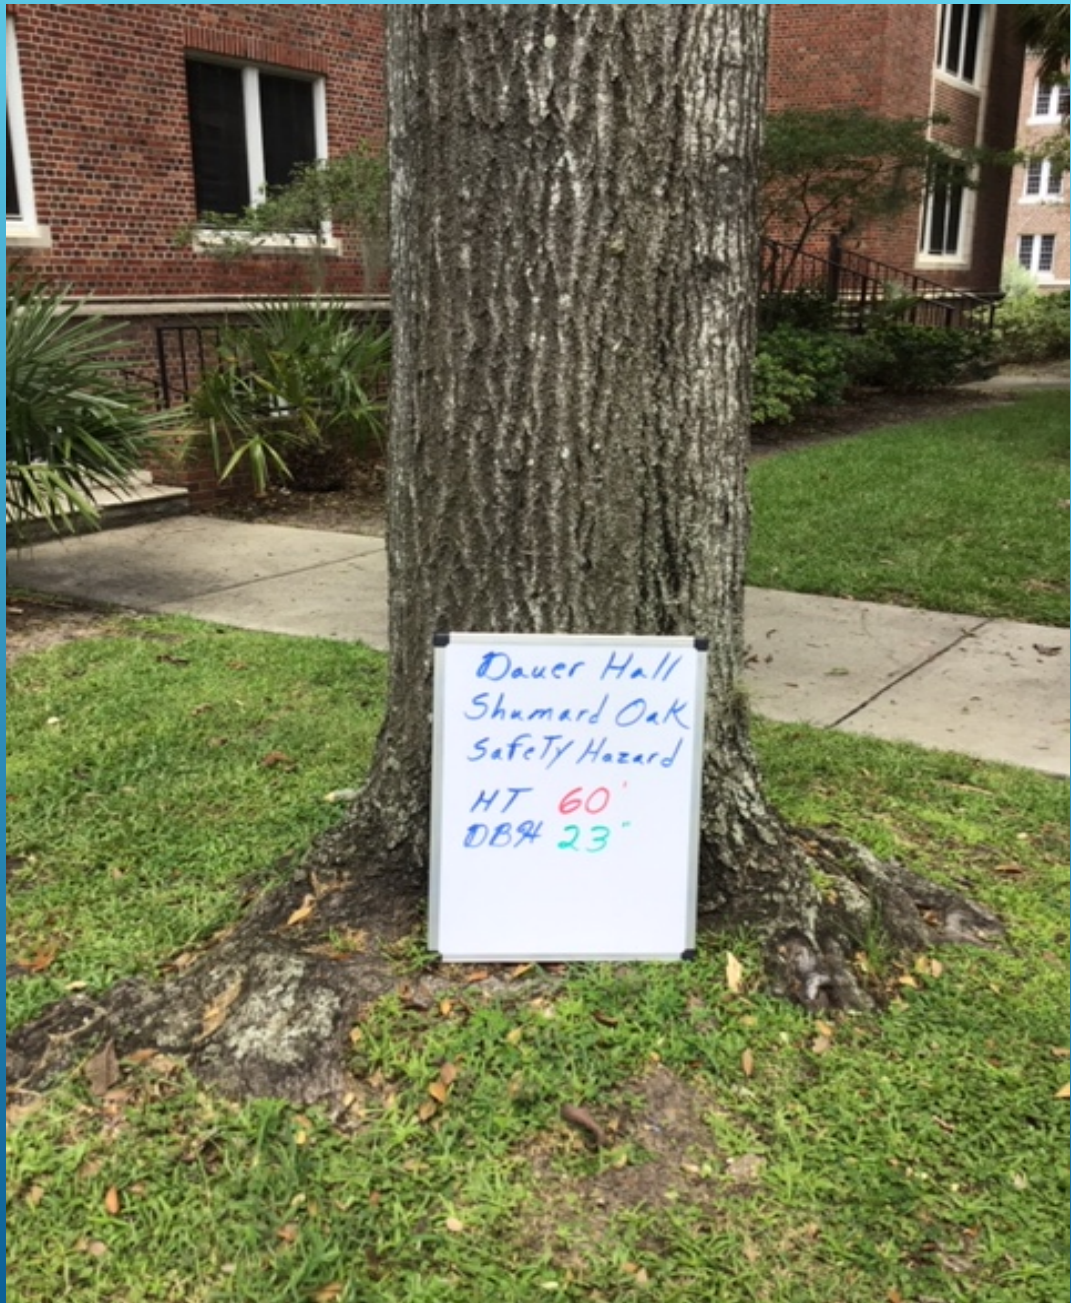 Dauer Hall
Shumard Oak
Safety Hazard
HT 60'
DBH 23"